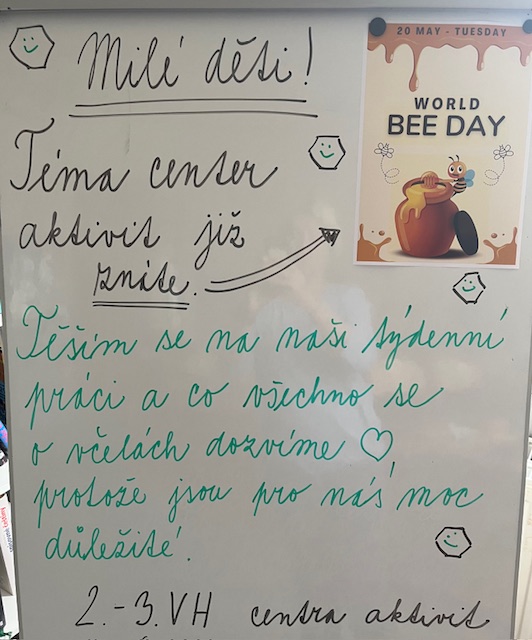 Milé děti!
20 MAY - TUESDAY
WORLD
BEE DAY
Téma center
aktivit již
znáte.
Těším se na naši týdenní
práci a co všechno se
o včelách dozvíme ♡,
protože jsou pro nás moc
důležité.
2.-3.VH centra aktivit